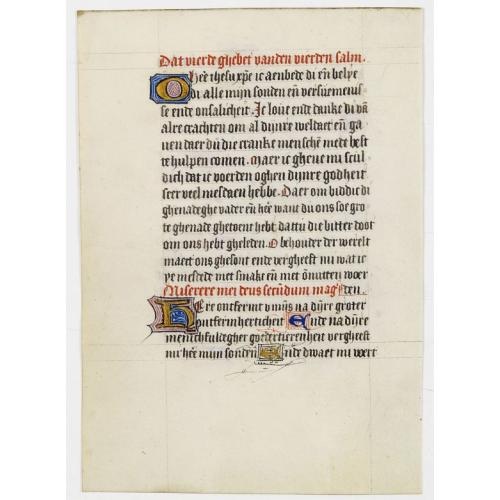 Dat vierde ghebet vanden vierden salm.
O hee ihesu xpe ic aenbede di eñ belye
di alle mijn sonden eñ versumenis
se ende onsalicheit. Ic loue ende danke di vā
alre crachten om al dijnre weldaet eñ ga
uen daer du die cranke menschē mede best
te hulpen comen. Maer ic gheue mi scul
dich dat ic voerden oghen dijnre godheit
seer veel mesdaen hebbe. Daer om biddic di
ghenadeghe vader eñ hee want du ons soe gro
te ghenade ghetoent hebt dattu die bitter doot
om ons hebt gheleden. O behouder der werelt
maect ons ghesont ende vergheeft mi wat ic
ye mesdede met smake eñ met onnutten woer
Miserere mei deus secūdum mag den.
Here ontfermt mijns na dijnre groter
ontfermherticheit Ende na dijnre
menichfuldegher goedertierenheit vergheeft
mi hee mijn sonden Ende dwaet mi voert